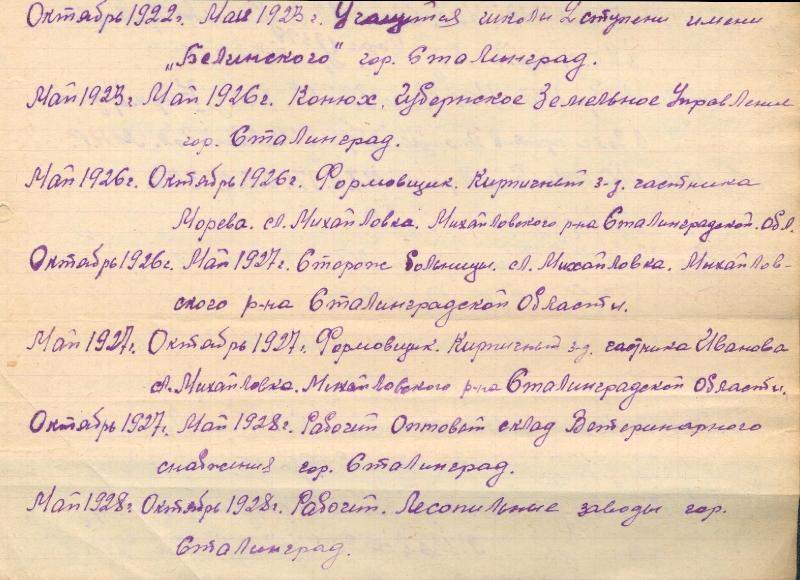 Октябрь 1922г. Май 1923г. Учащийся школы 2 ступени имени
„Белинского" гор. Сталинград.
Май 1923г. Май 1926г. Конюх. Губернское Земельное Управление
гор. Сталинград.
Май 1926г. Октябрь 1926г. Формовщик. Кирпичный з-д. частника
Морева. сл. Михайловка. Михайловского р-на Сталинградской. Обл.
Октябрь 1926г. Май 1927г. Сторож больницы. сл. Михайловка. Михайлов-
ского р-на Сталинградской Области.
Май 1927г. Октябрь 1927г. Формовщик. Кирпичный з-д. частника Иванова
сл. Михайловка. Михайловского р-на Сталинградской области.
Октябрь 1927г. Май 1928г. Рабочий Оптовой склад Ветеринарного
снабжения гор. Сталинград.
Май 1928г. Октябрь 1928г. Рабочий. Лесопильные заводы гор.
Сталинград.